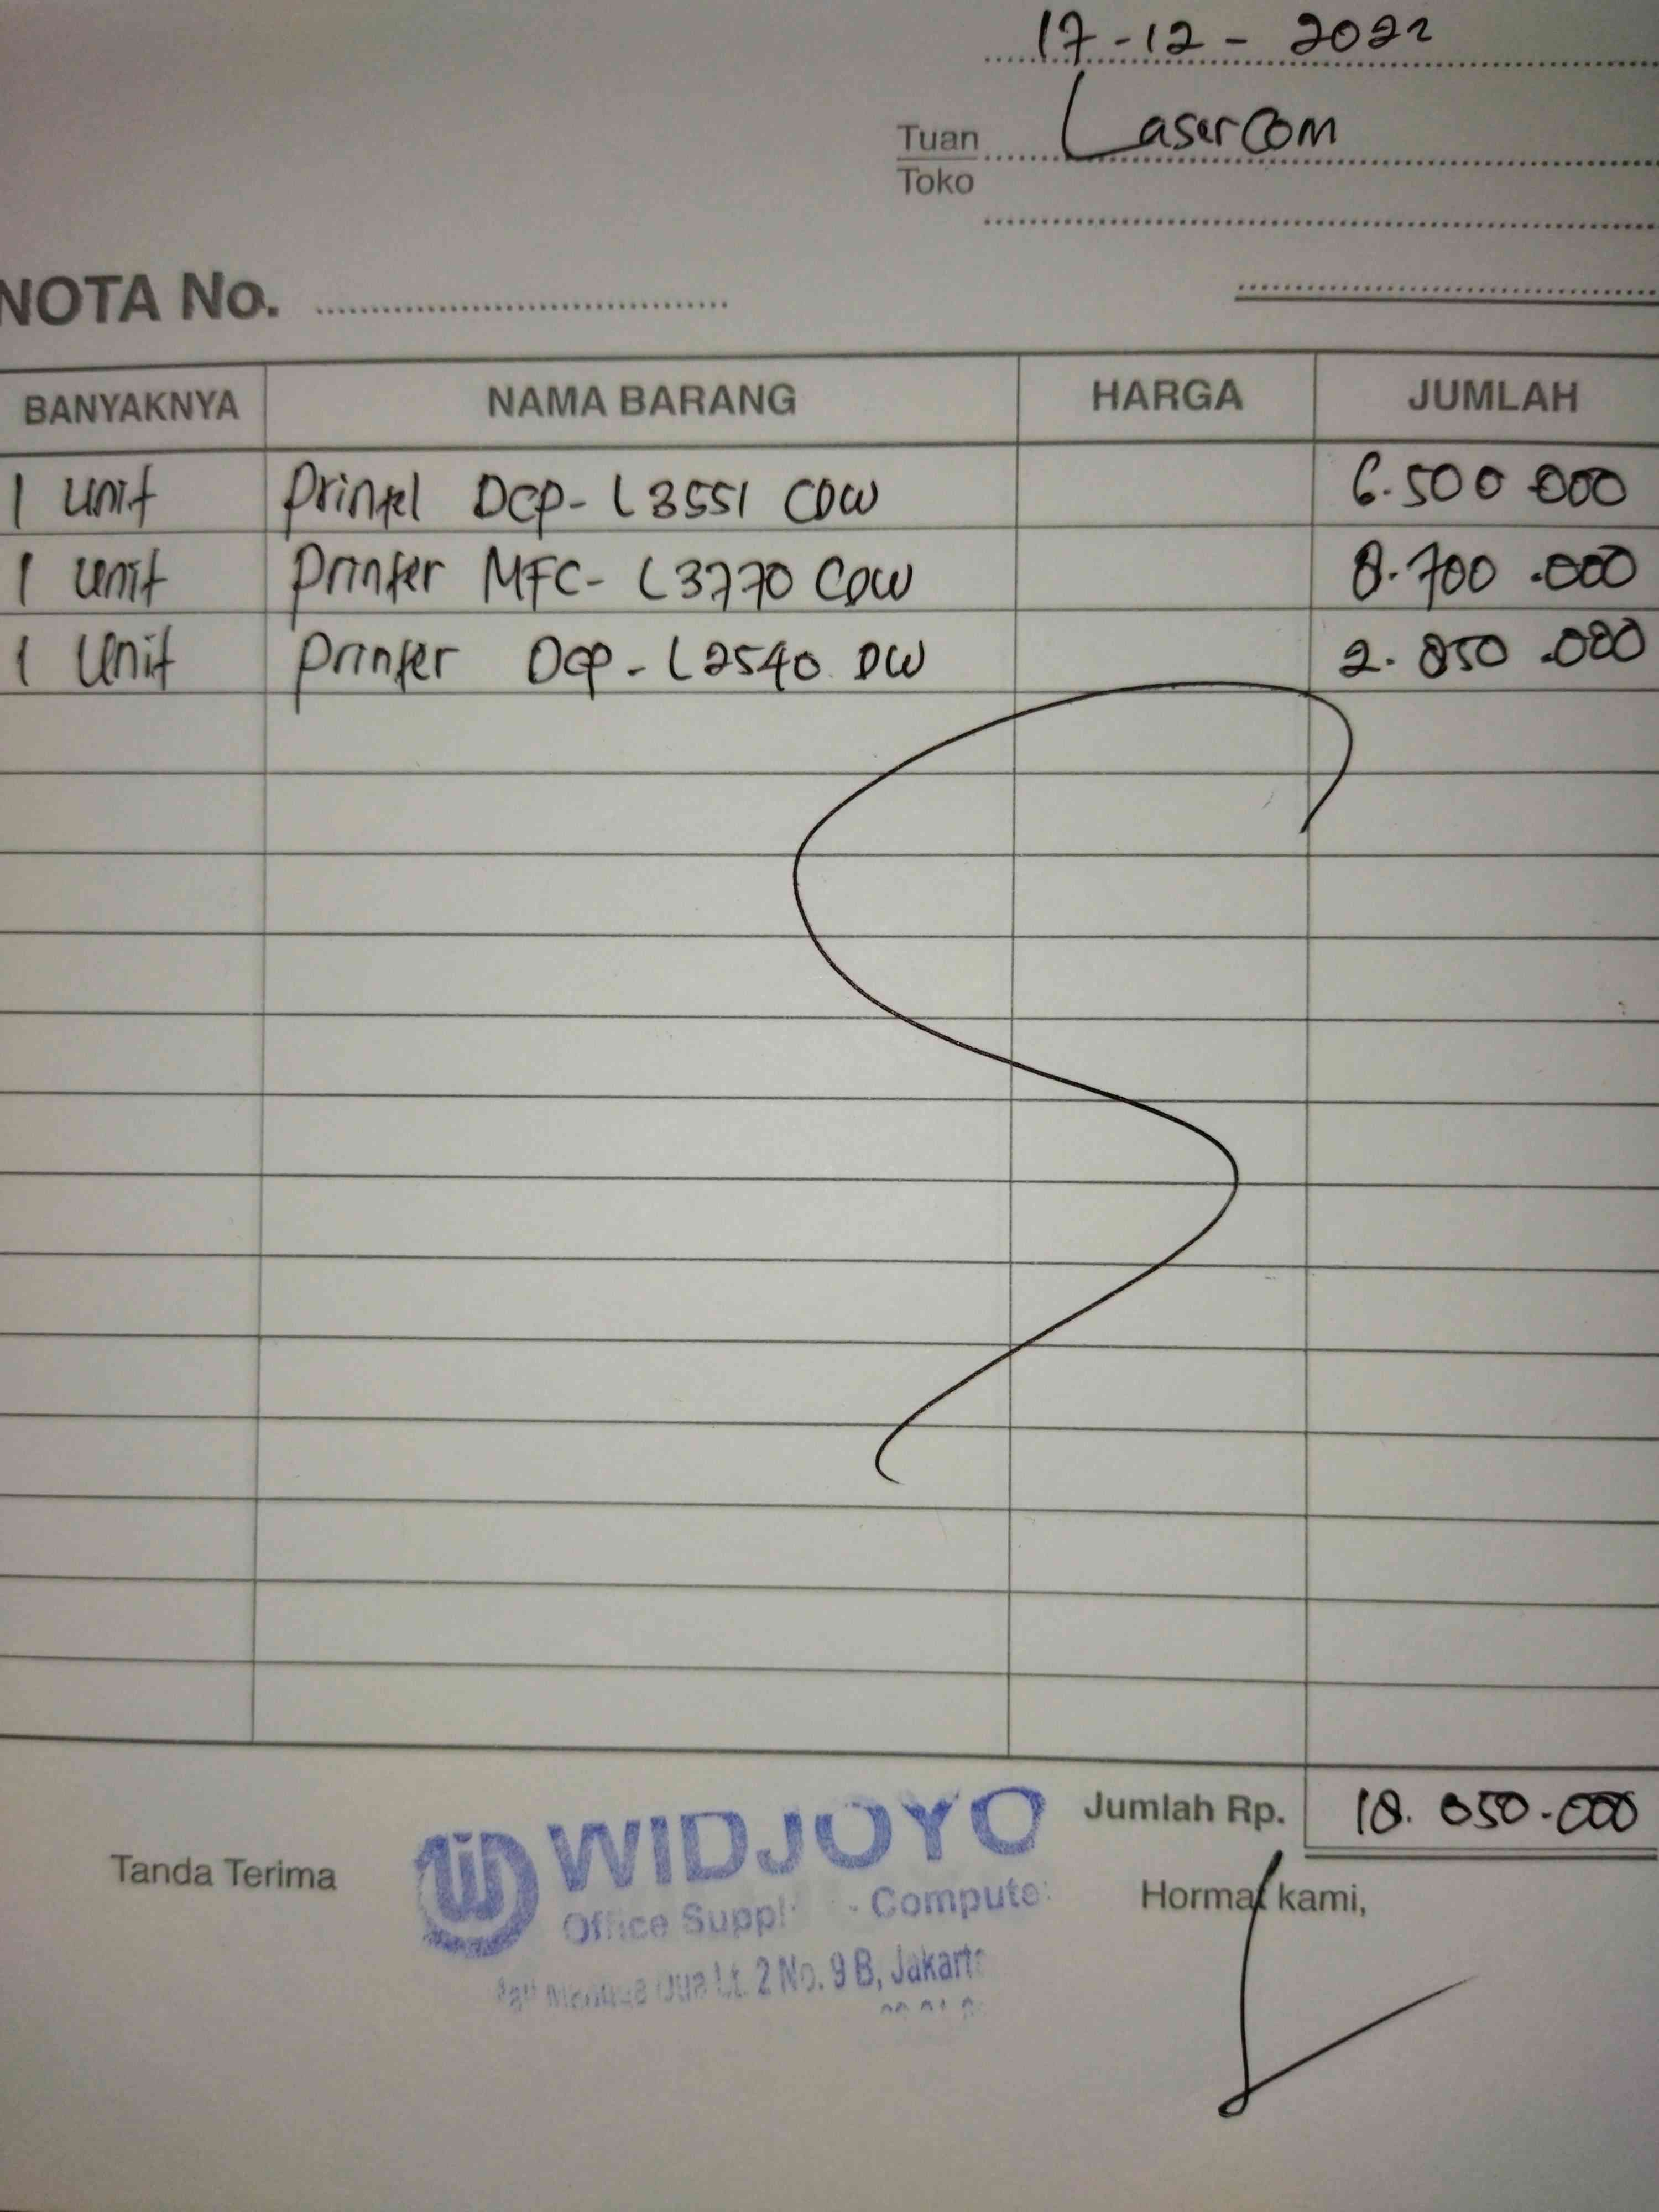 17-12-2022
Tuan Lasercom
Toko
NOTA No.
BANYAKNYA NAMA BARANG HARGA JUMLAH
1 Unit Printer DCP-L3551 CDW 6.500.000
1 Unit Printer MFC-L3770 CDW 8.700.000
1 Unit Printer DCP-L2540 DW 2.850.000
Jumlah Rp. 18.050.000
Tanda Terima
WIDJOYO
Office - Compute
Dua Lt. 2 No. 9 B, Jakarta
Hormat kami,